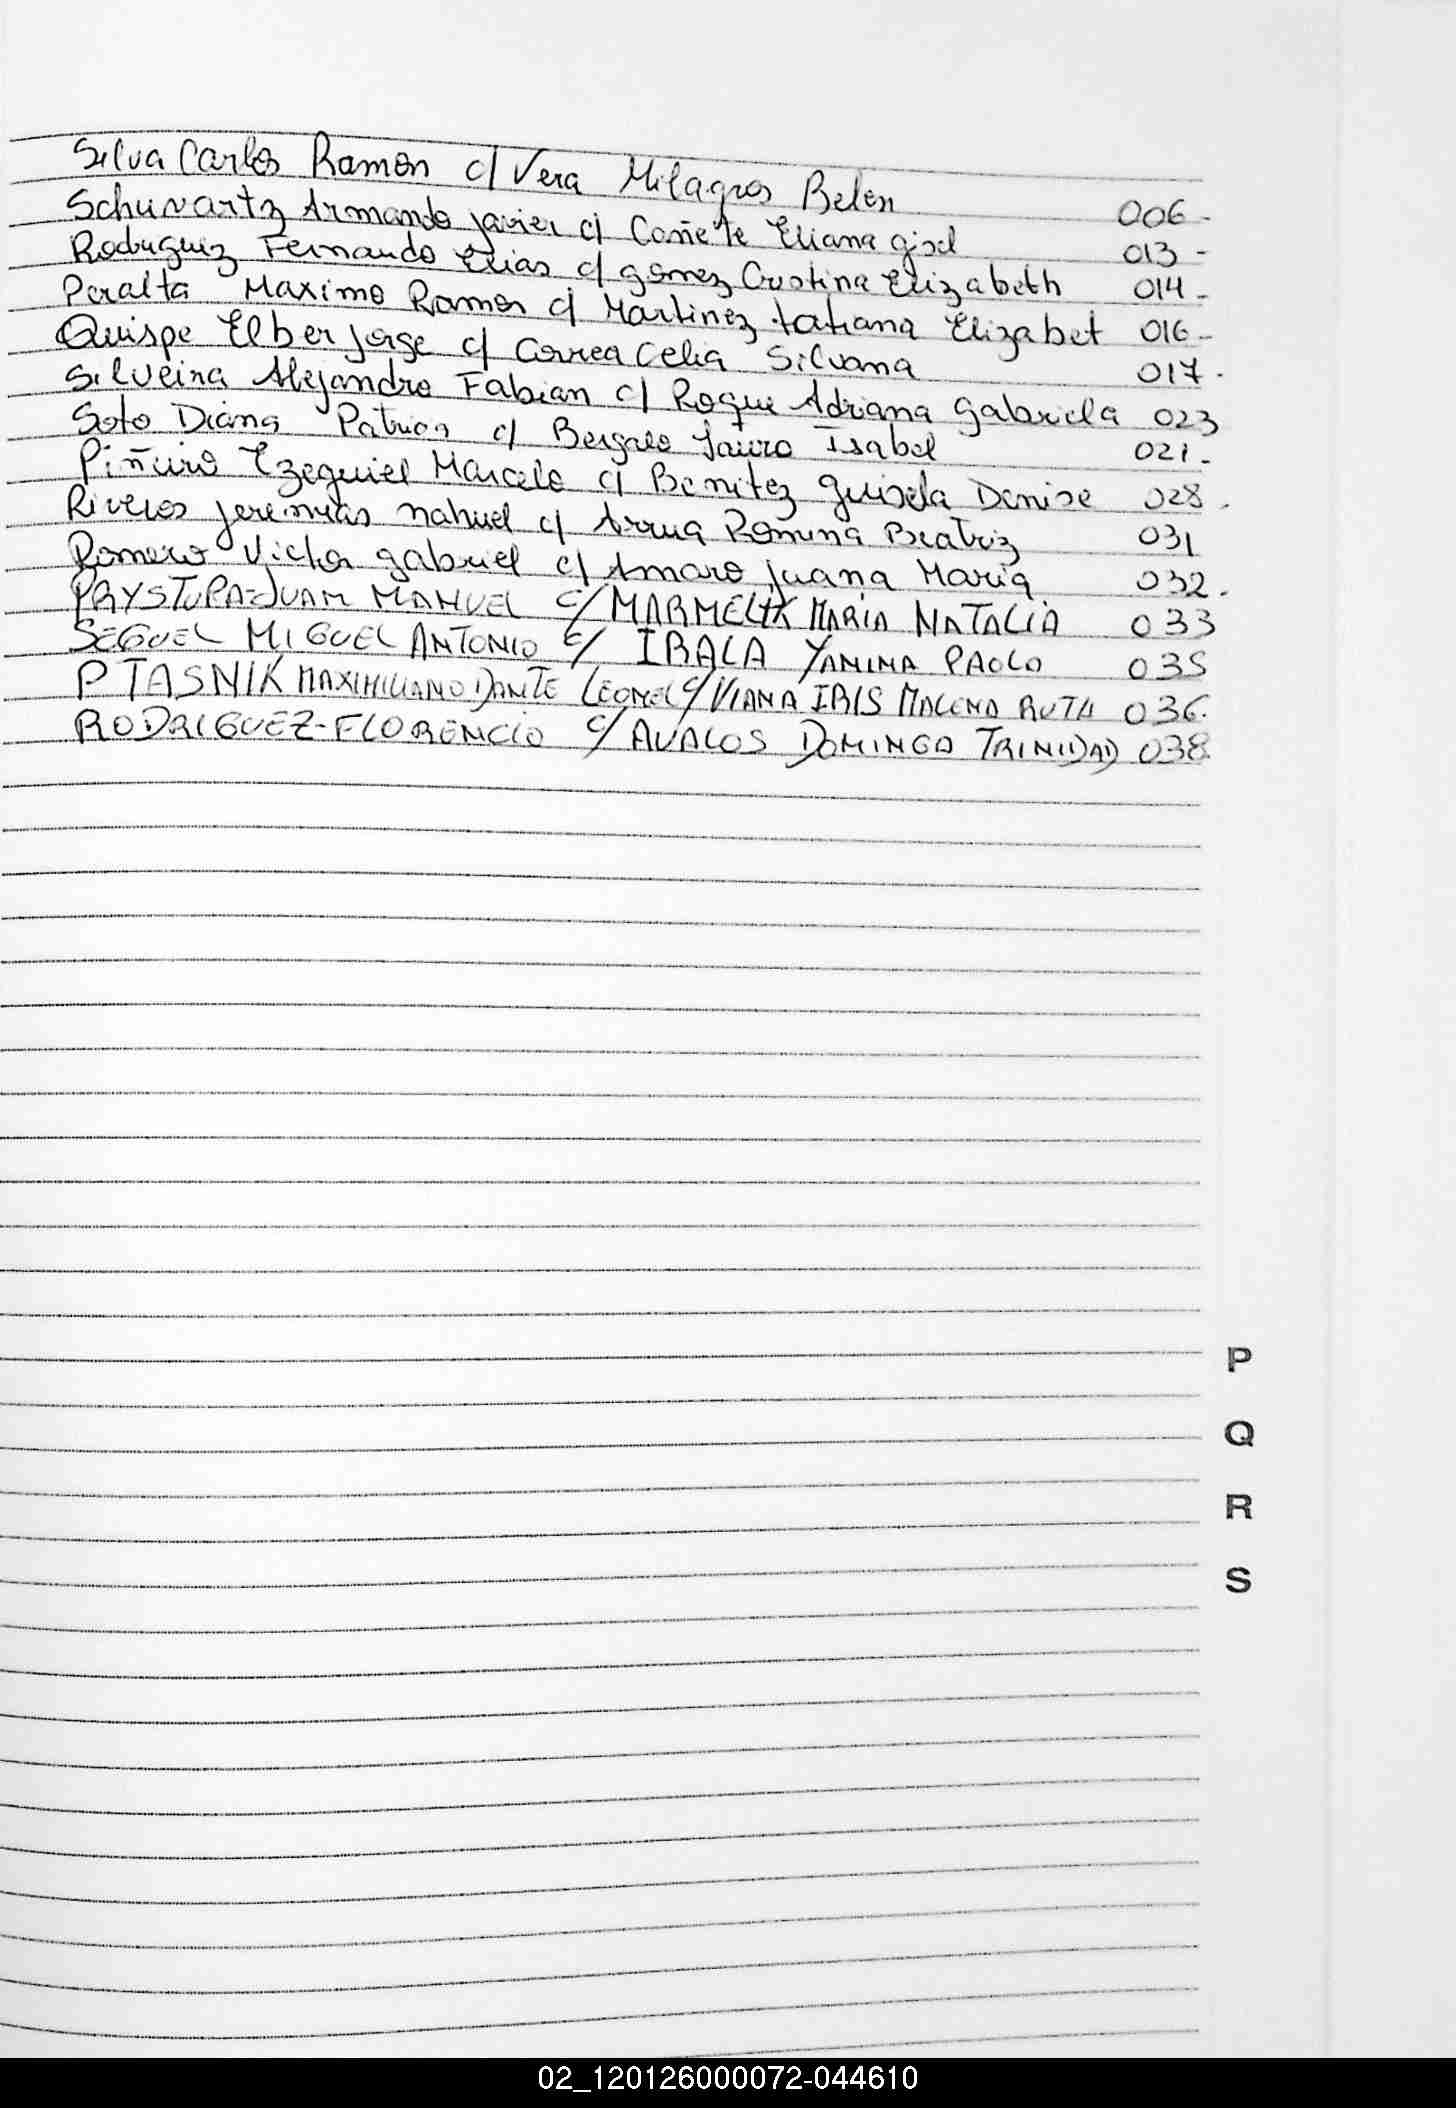 Silva Carlos Ramon c/ Vera Milagros Belen 006-
Schuvartz Armando javier c/ Cañete Eliana gisel 013-
Rodriguez Fernando Elias c/ gomez Cristina Elizabeth 014-
Peralta Maximo Ramon c/ Martinez tatiana Elizabet 016-
Quispe Elber Jorge c/ Correa Celia Silvana 017.
Silveira Alejandro Fabian c/ Roque Adriana gabriela 023
Soto Diana Patricia c/ Isabel 021.
Piñeiro Ezequiel Marcelo c/ Benitez guisela Denise 028.
Riveros jeremias nahuel c/ Arrua Romina Beatriz 031
Romero Victor gabriel c/ Amaro juana Maria 032.
PRYSTUPA-JUAN MANUEL c/ MARIA NATALIA 033
SEGUEL MIGUEL ANTONIO c/ IRALA YANINA PAOLO 035
PTASNIK MAXIMILIANO DANTE LEONEL c/ VIANA IRIS MALENA RUTH 036.
RODRIGUEZ-FLORENCIO c/ AVALOS DOMINGA TRINIDAD 038.
P
Q
R
S
02_120126000072-044610